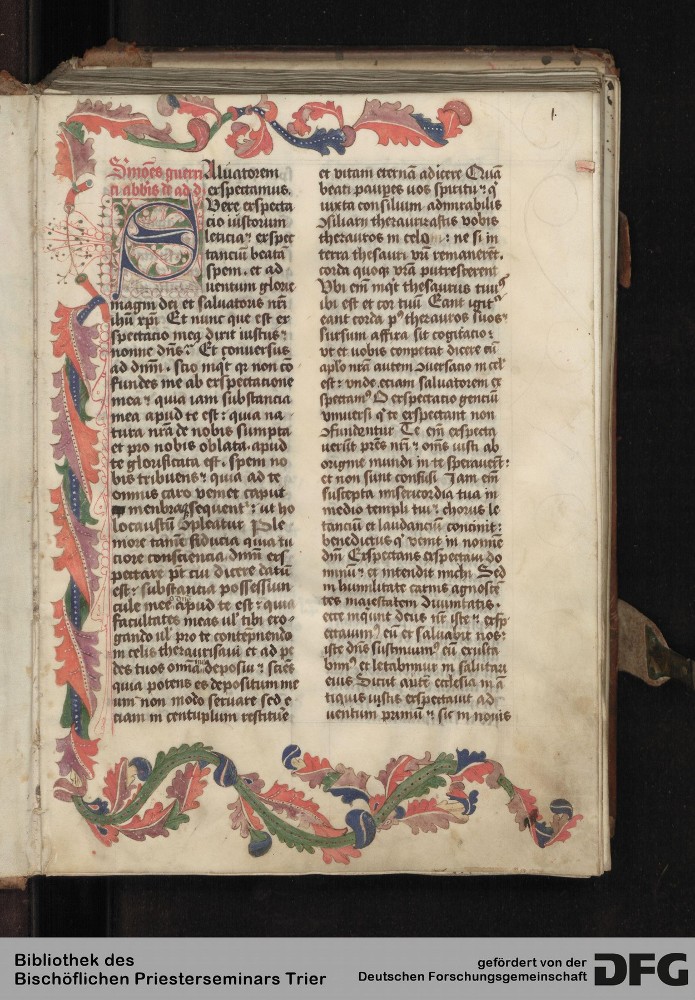 1.
Smões guerri
ci abbis de ad d
Aluatorem
exspectamus.
Vere exspecta
cio iustorum
leticia: exspec
tancium beatā
spem. et ad
uentum glorie
magni dei et saluatoris nr̄i
ihū xpī Et nunc que est ex
spectacio mea dixit iustus:
nonne dn̄s: Et conuersus
ad dnm̄. scio inqͥt qꝫ non cō
fundes me ab exspectacione
mea: quia iam substancia
mea apud te est: quia na
tura nr̄a de nobis sumpta
et pro nobis oblata. apud
te glorificata est. spem no
bis tribuens: quia ad te
omnis caro veniet caput
membraqꝫ sequent᷑: ut ho
locaustū 9pleatur
more tamē fiducia quia tu
ciore consciencia dnm̄ exs
pectare pt cui dicere datū
est: substancia possessiun
cule mee apud te est: quia
facultates meas ul᷑ tibi ero-
gando ul᷑ pro te contēpnendo
in celis thezaurisaui et ad pe
des tuos omīa deposui: sciēs
quia potens es depositum me
um non modo seruare sed e
ciam in centuplum restitue
et vitam eternā adicere Quā
beati paupes uos spiritu: qͥ
iuxta consilium admirabilis
9siliarii thezaurizastis vobis
thezauros in celo: ne si in
terra thesauri vr̄i remanerēt.
corda quoqꝫ vr̄a putrescerent
Vbi em̄ inqͥt thesaurus tuus
ibi est et cor tuū Eant igit᷑
eant corda pꝰ thezauros suos:
sursum affixa sit cogitacio:
vt et uobis competat dicere cū
aplo nr̄a autem 9uersacio in cel᷑
est: vnde eciam saluatorem ex
spectamꝰ O exspectacio genciū
vniuersi qͥ te exspectant non
9fundentur Te em̄ exspecta
uerūt prēs nr̄i: om̄s iusti ab
origine mundi in te sperauerūt:
et non sunt confusi Iam em̄
suscepta misericordia tua in
medio templi tui: chorus le
tanciū et laudanciū concinit:
benedictus qͥ venit in nomine
dn̄i Exspectans exspectaui do
minū: et intendit michi Sed
in humilitate carnis agnoscē
tes maiestatem diuinitatis.
ecce inquint deus nr̄ iste: exsp
ectauimꝰ eū et saluabit nos:
iste dn̄s sustinuimꝰ eū exulta
bimꝰ et letabimur in salutari
eius Sicut aptē ecclesia in ā
tiquis iustis exspectauit ad
uentum primū: sic in nouis
Bibliothek des
Bischöflichen Priesterseminars Trier
gefördert von der
Deutschen Forschungsgemeinschaft
DFG